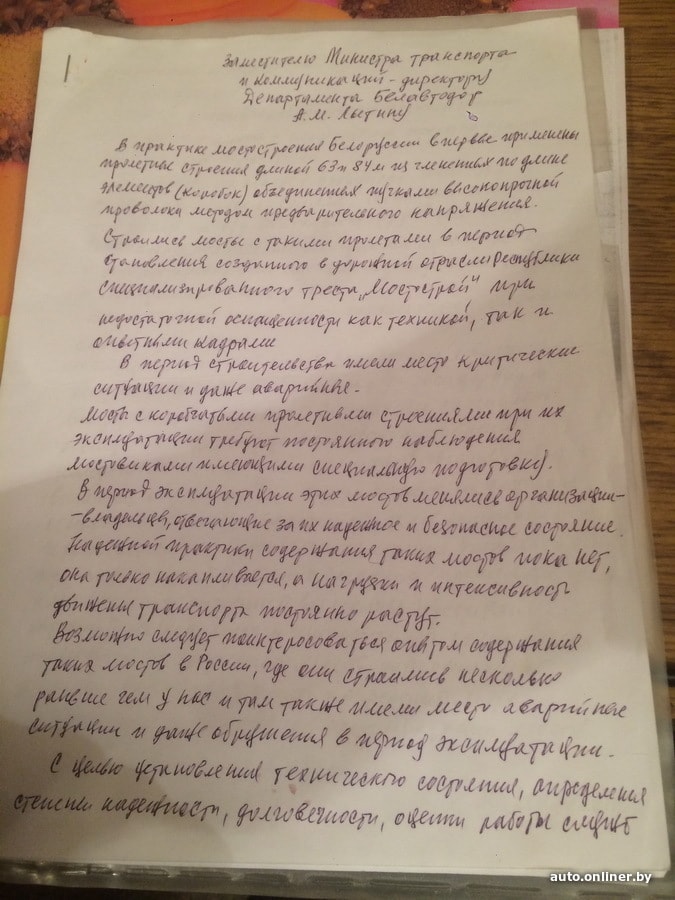 Заместителю Министра транспорта
и коммуникаций - директору
Департамента Белавтодор
А.М.
В практике мостостроения Белоруссии впервые применены
пролетные строения длиной 63 и 84 м из члененных по длине
элементов (коробок) объединенных пучками высокопрочной
проволоки методом предварительного напряжения.
Строились мосты с такими пролетами в период
становления созданного в дорожной отрасли Республики
специализированного треста „Мостострой" при
недостаточной оснащенности как техникой, так и
опытными кадрами
В период строительства имели место критические
ситуации и даже аварийные.
Мосты с коробчатыми пролетными строениями при их
эксплуатации требуют постоянного наблюдения
мостовиками имеющими специальную подготовку.
В период эксплуатации этих мостов менялись организации-
-владельцы, отвечающие за их надежное и безопасное состояние.
Надежной практики содержания таких мостов пока нет,
она только накапливается, а нагрузки и интенсивность
движения транспорта постоянно растут.
Возможно следует поинтересоваться опытом содержания
таких мостов в России, где они строились несколько
раньше чем у нас и там также имели место аварийные
ситуации и даже обрушения в период эксплуатации.
С целью установления технического состояния, определения
степени надежности, долговечности, оценки работы следует
auto.onliner.by